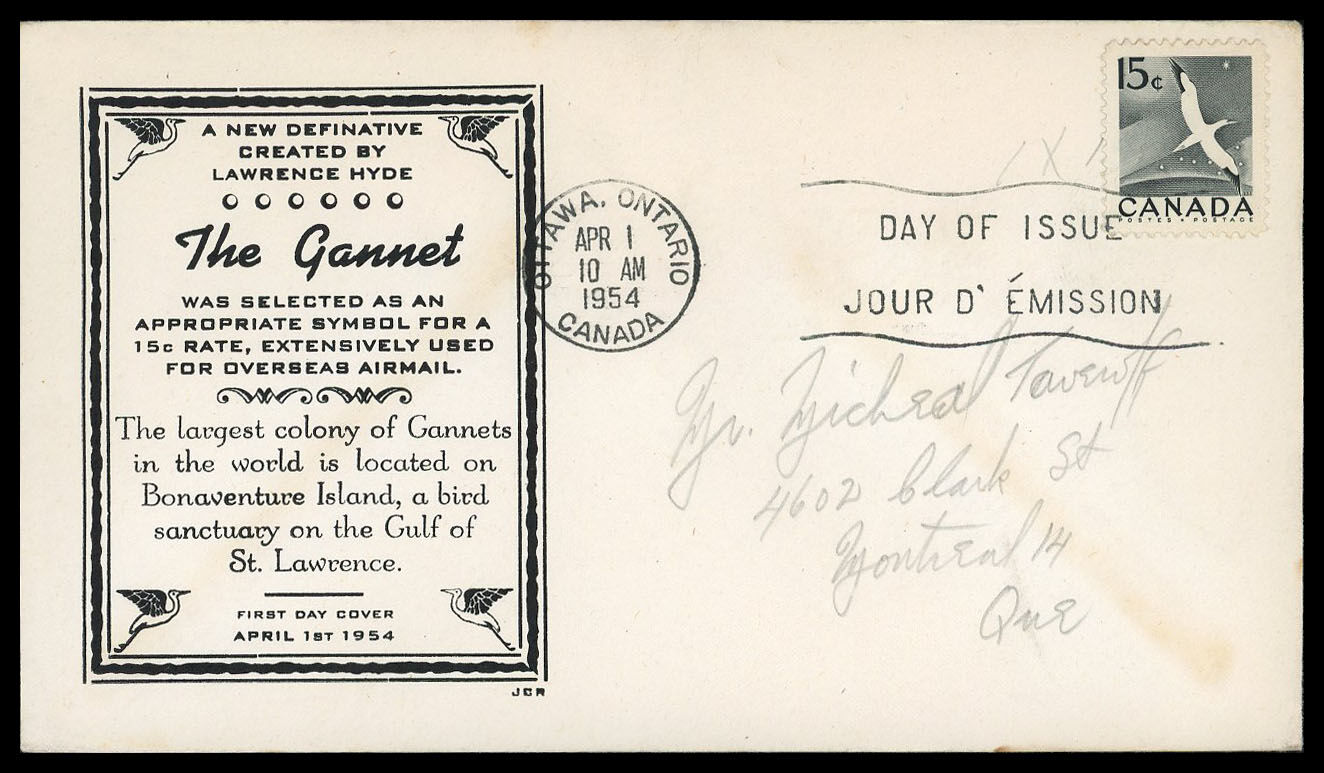 A NEW DEFINATIVE
CREATED BY
LAWRENCE HYDE
The Gannet
WAS SELECTED AS AN
APPROPRIATE SYMBOL FOR A
15c RATE, EXTENSIVELY USED
FOR OVERSEAS AIRMAIL.
The largest colony of Gannets
in the world is located on
Bonaventure Island, a bird
sanctuary on the Gulf of
St. Lawrence.
FIRST DAY COVER
APRIL 1ST 1954
JCR
OTTAWA, ONTARIO
APR 1
10 AM
1954
CANADA
15c
CANADA
POSTES • POSTAGE
DAY OF ISSUE
JOUR D' ÉMISSION
Mr. Micheal
4602 Clark St
Montreal 14
Que